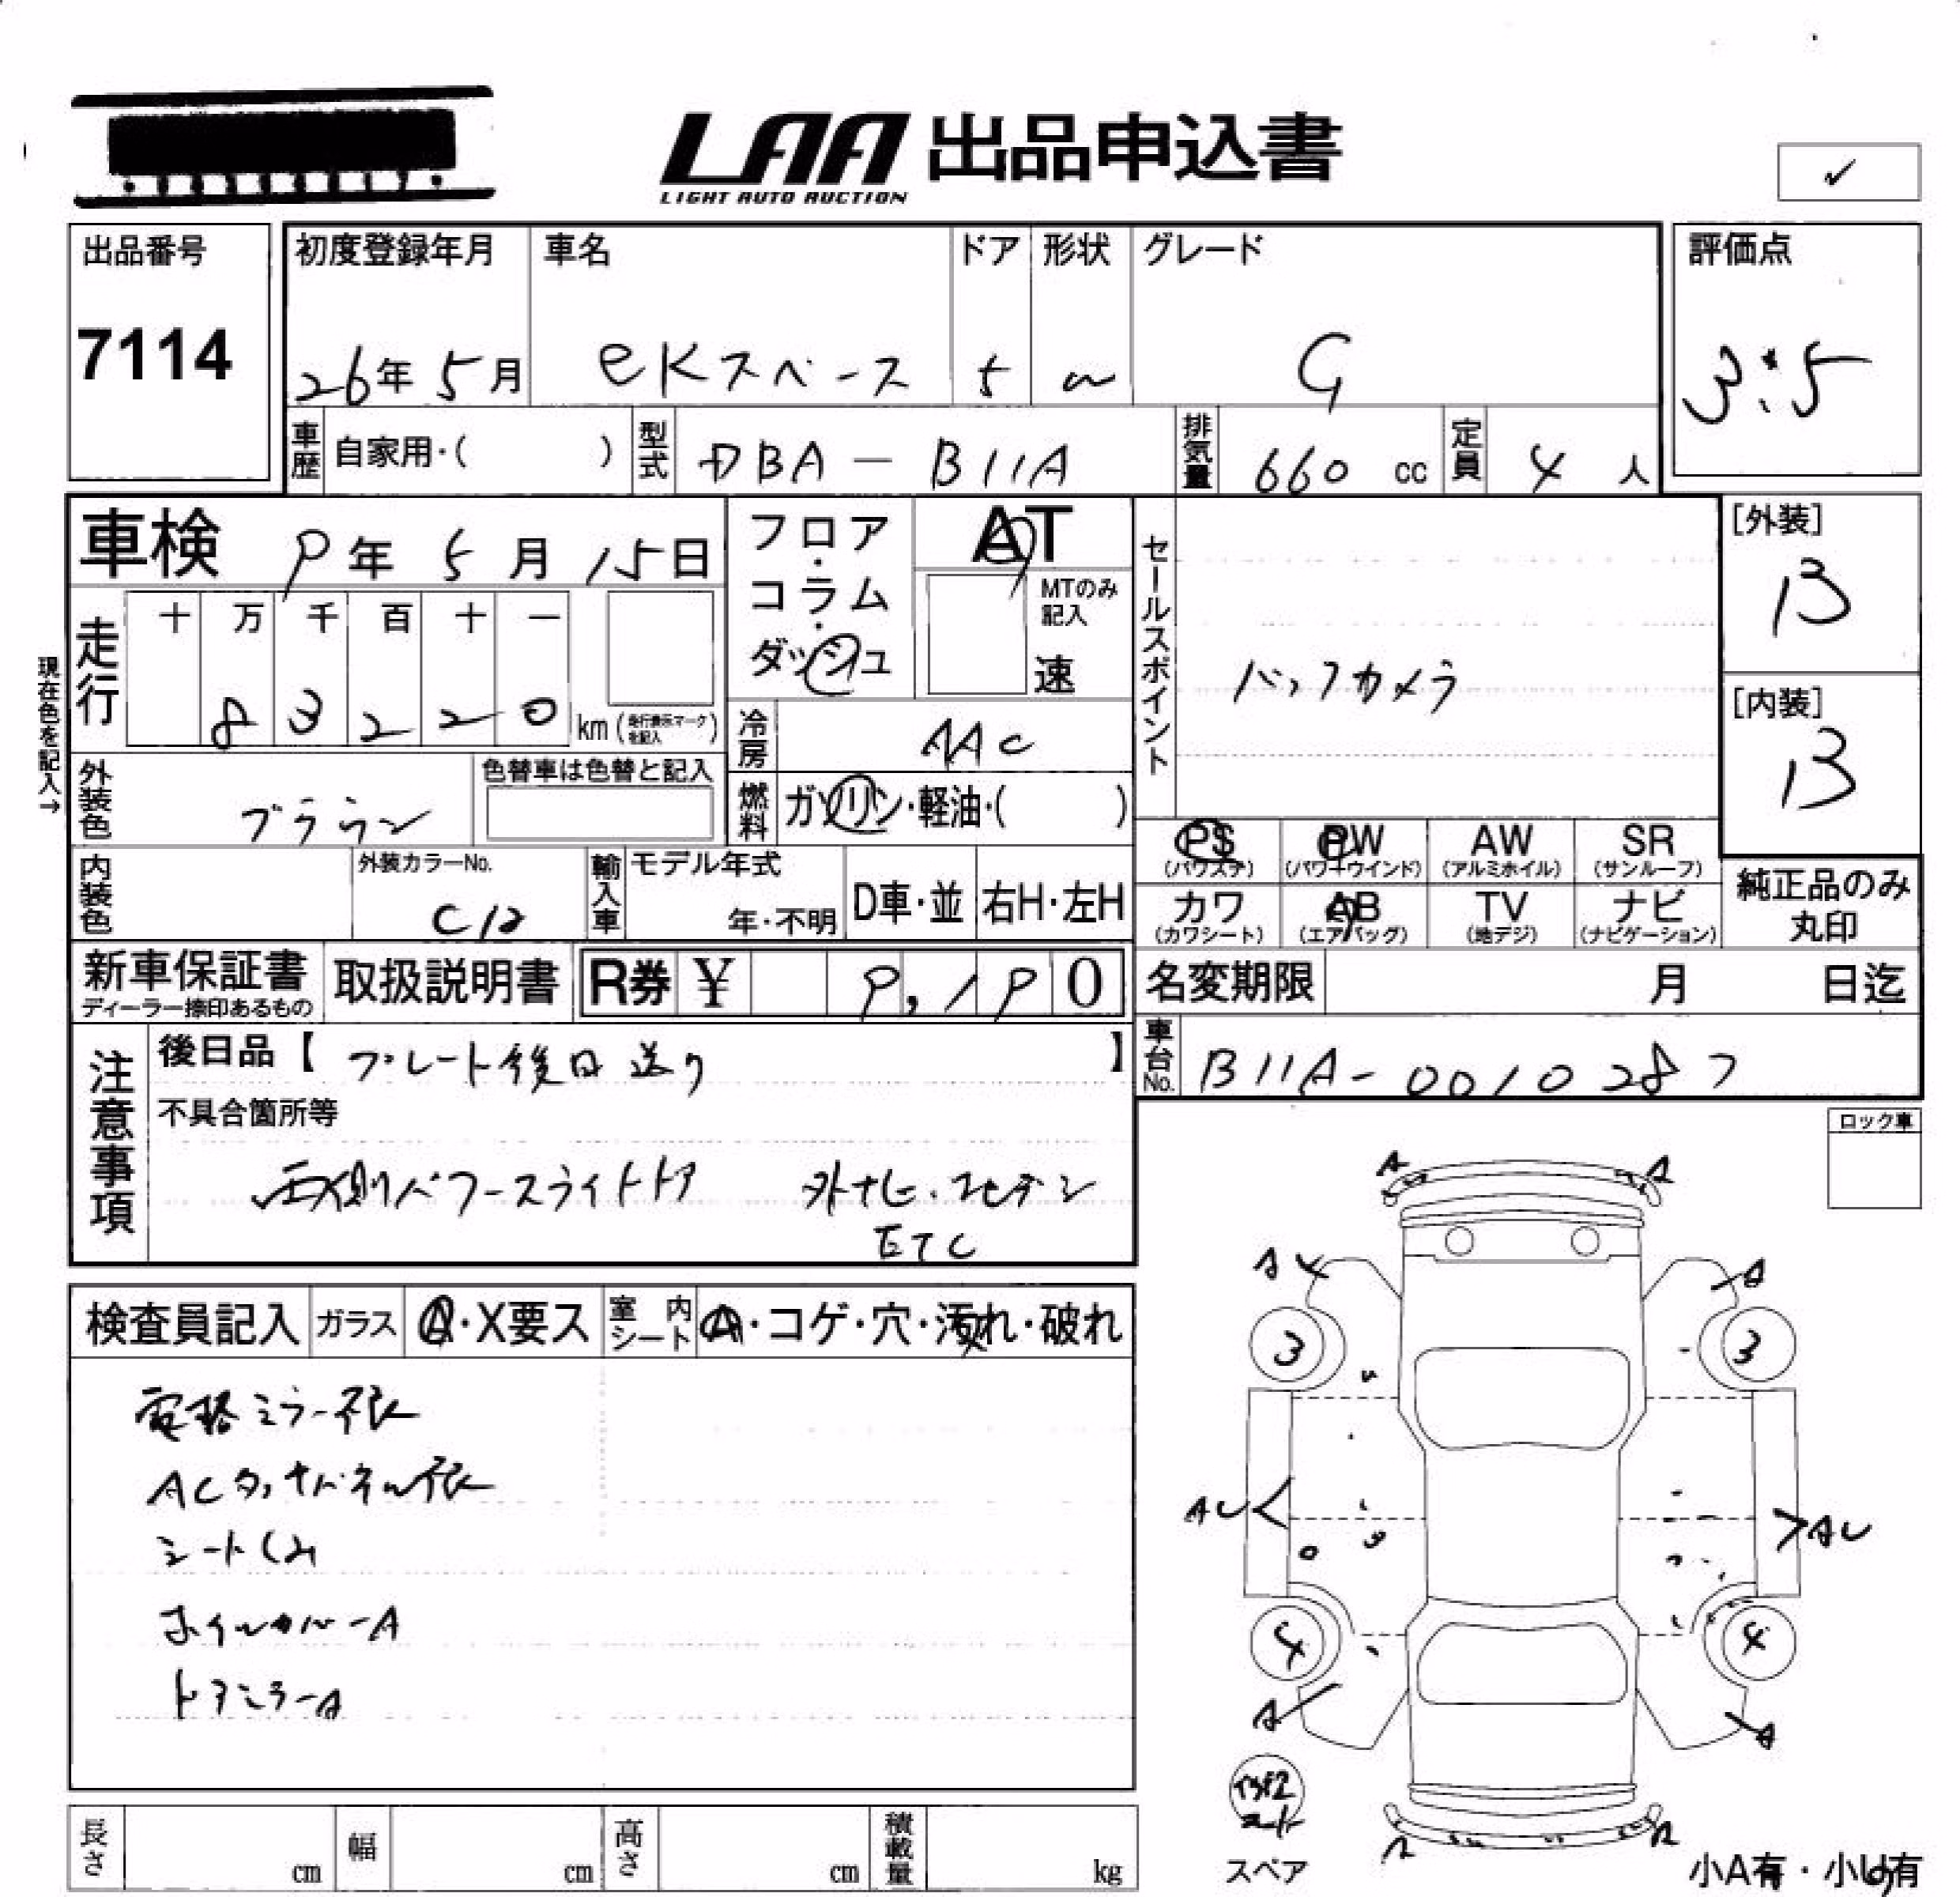 LAA 出品申込書
LIGHT AUTO AUCTION
出品番号
7114
初度登録年月
26年 5月
車名
eKスペース
ドア
5
形状
グレード
G
評価点
3.5
車歴 自家用・( )
型式 DBA - B11A
排気量 660 cc
定員 4 人
車検 9年 5月 15日
フロア・コラム・ダッシュ
AT
MTのみ記入
速
セールスポイント
バックカメラ
[外装]
B
[内装]
B
現在色を記入→
走行
十 万 千 百 十 一
8 3 2 2 0 km (走行表示マークを記入)
冷房 AAC
燃料 ガソリン・軽油・( )
外装色 ブラウン
色替車は色替と記入
内装色
外装カラーNo.
輸入車 モデル年式
年・不明
D車・並 右H・左H
PS (パワステ)
PW (パワーウインド)
AW (アルミホイル)
SR (サンルーフ)
カワ (カワシート)
AB (エアバッグ)
TV (地デジ)
ナビ (ナビゲーション)
純正品のみ丸印
新車保証書
ディーラー捺印あるもの
取扱説明書
R券 ¥ 9,190
名変期限 月 日迄
車台No. B11A-0010287
注意事項
後日品【 プレート後日送り 】
不具合箇所等
両側パワースライドドア 外ナビ.フルセグ
ETC
ロック車
検査員記入
ガラス A・X要ス
室内シート A・コゲ・穴・汚れ・破れ
電格ミラー不良
ACタッチパネル不良
シートクスミ
ホイルカバーA
ドアミラーA
A A
A A
3 3
AU AU
4 4
A A
スペア
小A有・小U有
長さ cm
幅 cm
高さ cm
積載量 kg